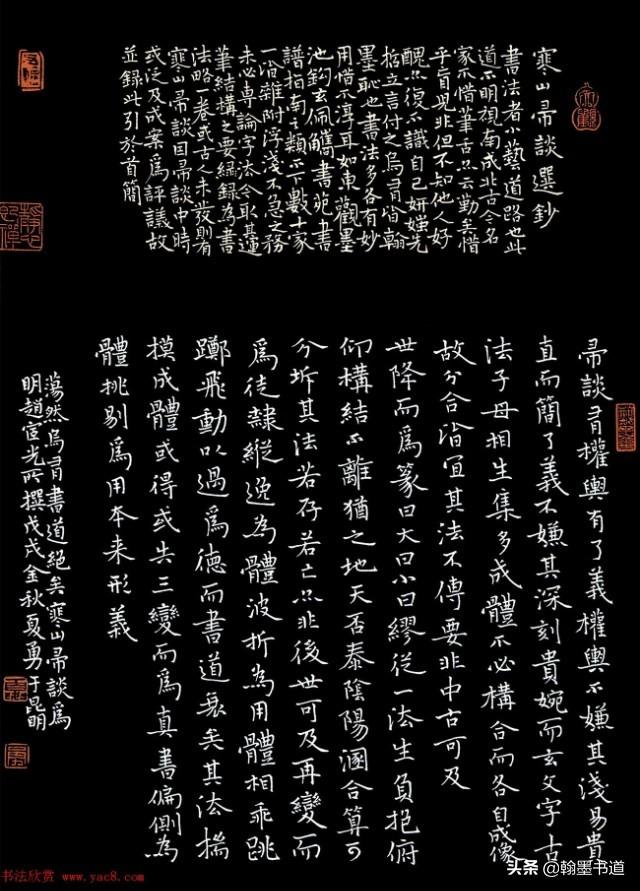 寒山帚談選鈔
書法者小藝道路也此
道不明視南成北古今名
家不惜筆古只云勤美惜
乎盲兕非但不知他人好
醜只復不識自己妍媸先
哲立言付之烏有皆翰
墨恥也書法多各有妙
用惜不淳耳如東觀墨
池鈎玄佩觿書苑書
譜指南之類不下數十家
一冶雜附浮淺不急之務
未必專論字法今取其運
筆結構之要編錄為書
法略一卷或古人未發則有
寒山帚談目帚談中時
或泛及成案爲評議故
並錄此引於首簡
帚談有權輿有了義權輿不嫌其淺易貴
直而簡了義不嫌其深刻貴婉而玄文字古
法子母相生集多成體不必構合而各自成像
故分合皆冝其法不傳要非中古可及
世降而爲篆曰大曰小曰繆從一法生負抱俯
仰構結不離猶之地天否泰陰陽溷合算可
分坼其法若存若亡只非後世可及再變而
爲徒隸縱逸為體波折為用體相乖跳
躑飛動以過爲德而書道衰矣其法揣
摸成體或得或失三變而爲真書偏側為
體挑剔爲用本来形義
蕩然烏有書道絕矣寒山帚談爲
明趙宧光所撰戊戌金秋夏勇于昆明
书法欣赏 www.yac8.com
头条 @翰墨书道